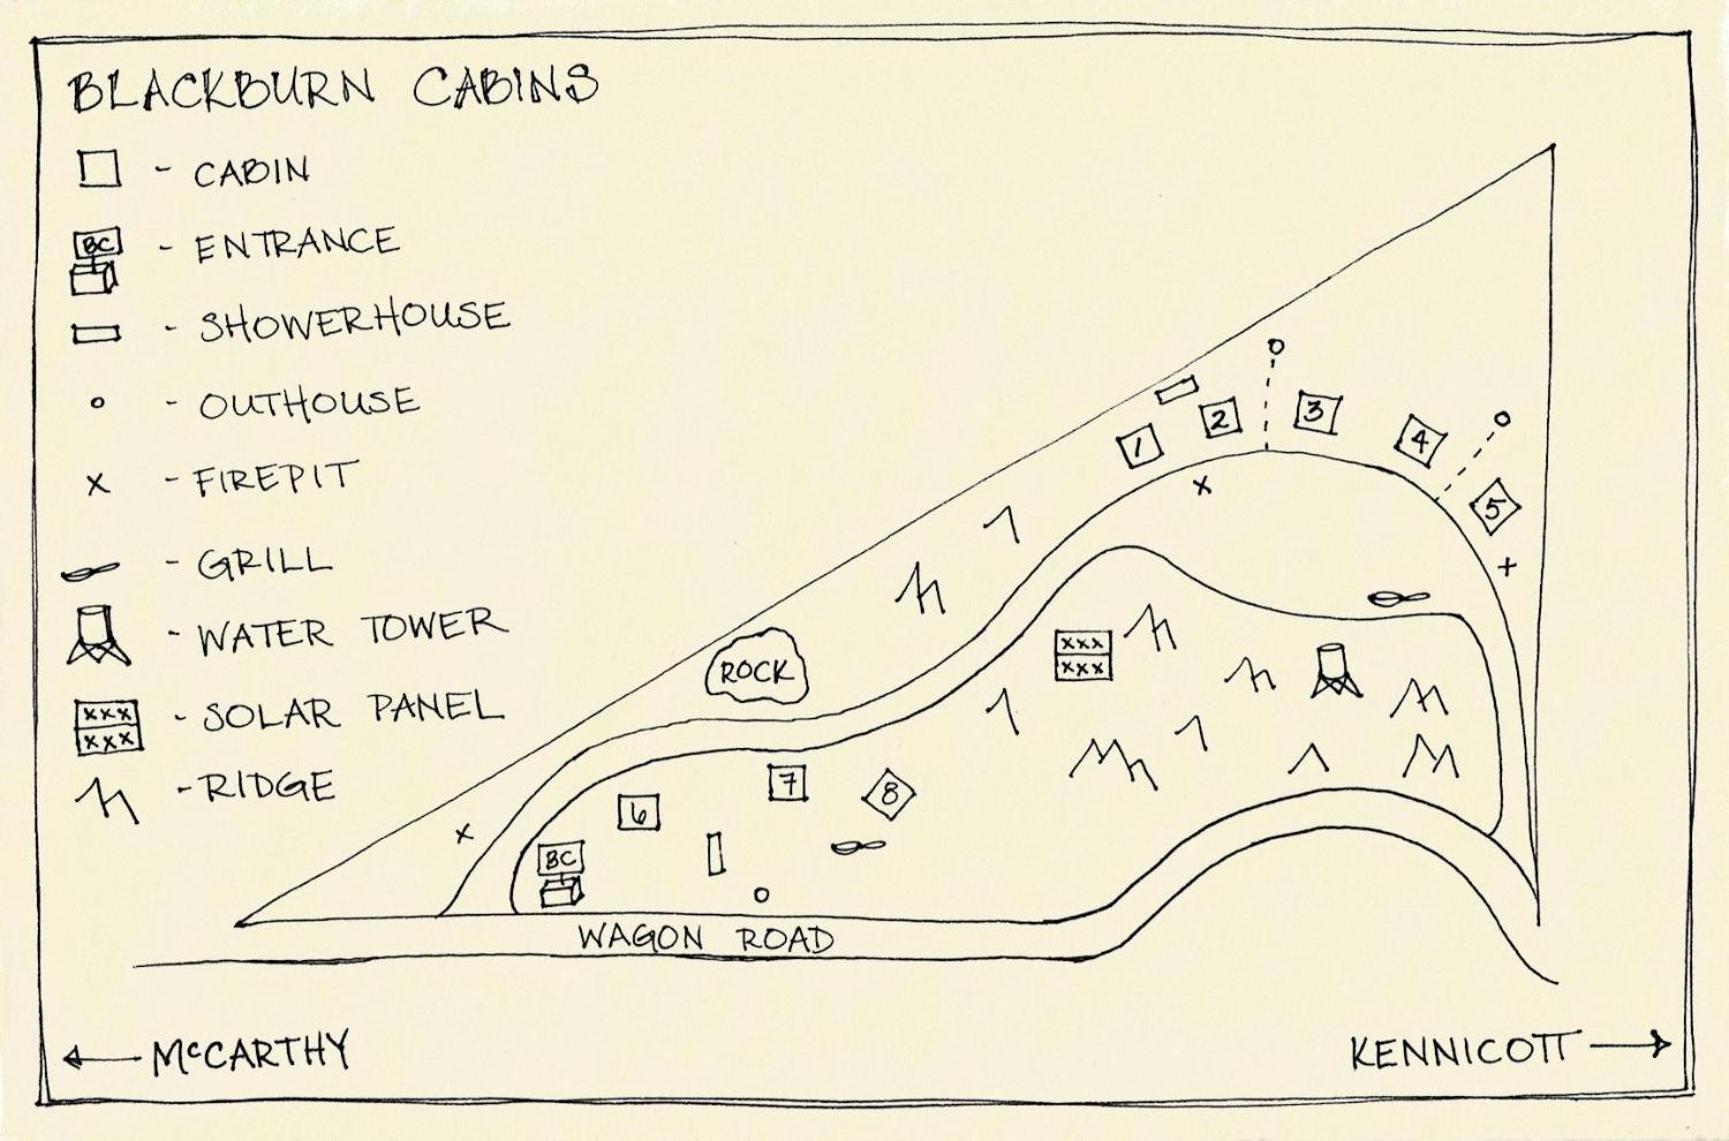 BLACKBURN CABINS
- CABIN
BC - ENTRANCE
- SHOWERHOUSE
- OUTHOUSE
x - FIREPIT
- GRILL
- WATER TOWER
xxx
xxx - SOLAR PANEL
- RIDGE
1
2
3
4
5
x
+
ROCK
xxx
xxx
6
7
8
x
BC
WAGON ROAD
← McCARTHY
KENNICOTT →